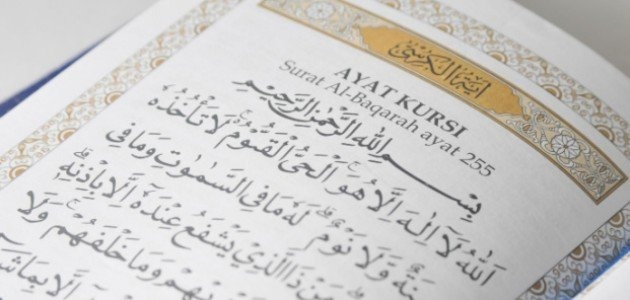 اية الكرسي
AYAT KURSI
Surat Al-Baqarah ayat 255
بِسْمِ اللهِ الرَّحْمٰنِ الرَّحِيْمِ
اَللهُ لَا اِلٰهَ اِلَّا هُوَ الْحَيُّ الْقَيُّوْمُ لَا تَأْخُذُهُ
وَلَا نَوْمٌ لَهُ مَا فِي السَّمٰوٰتِ وَمَا فِى
مَنْ ذَا الَّذِيْ يَشْفَعُ عِنْدَهُ اِلَّا بِاِذْنِهِ
وَمَا خَلْفَهُمْ وَلَا
اِلَّا